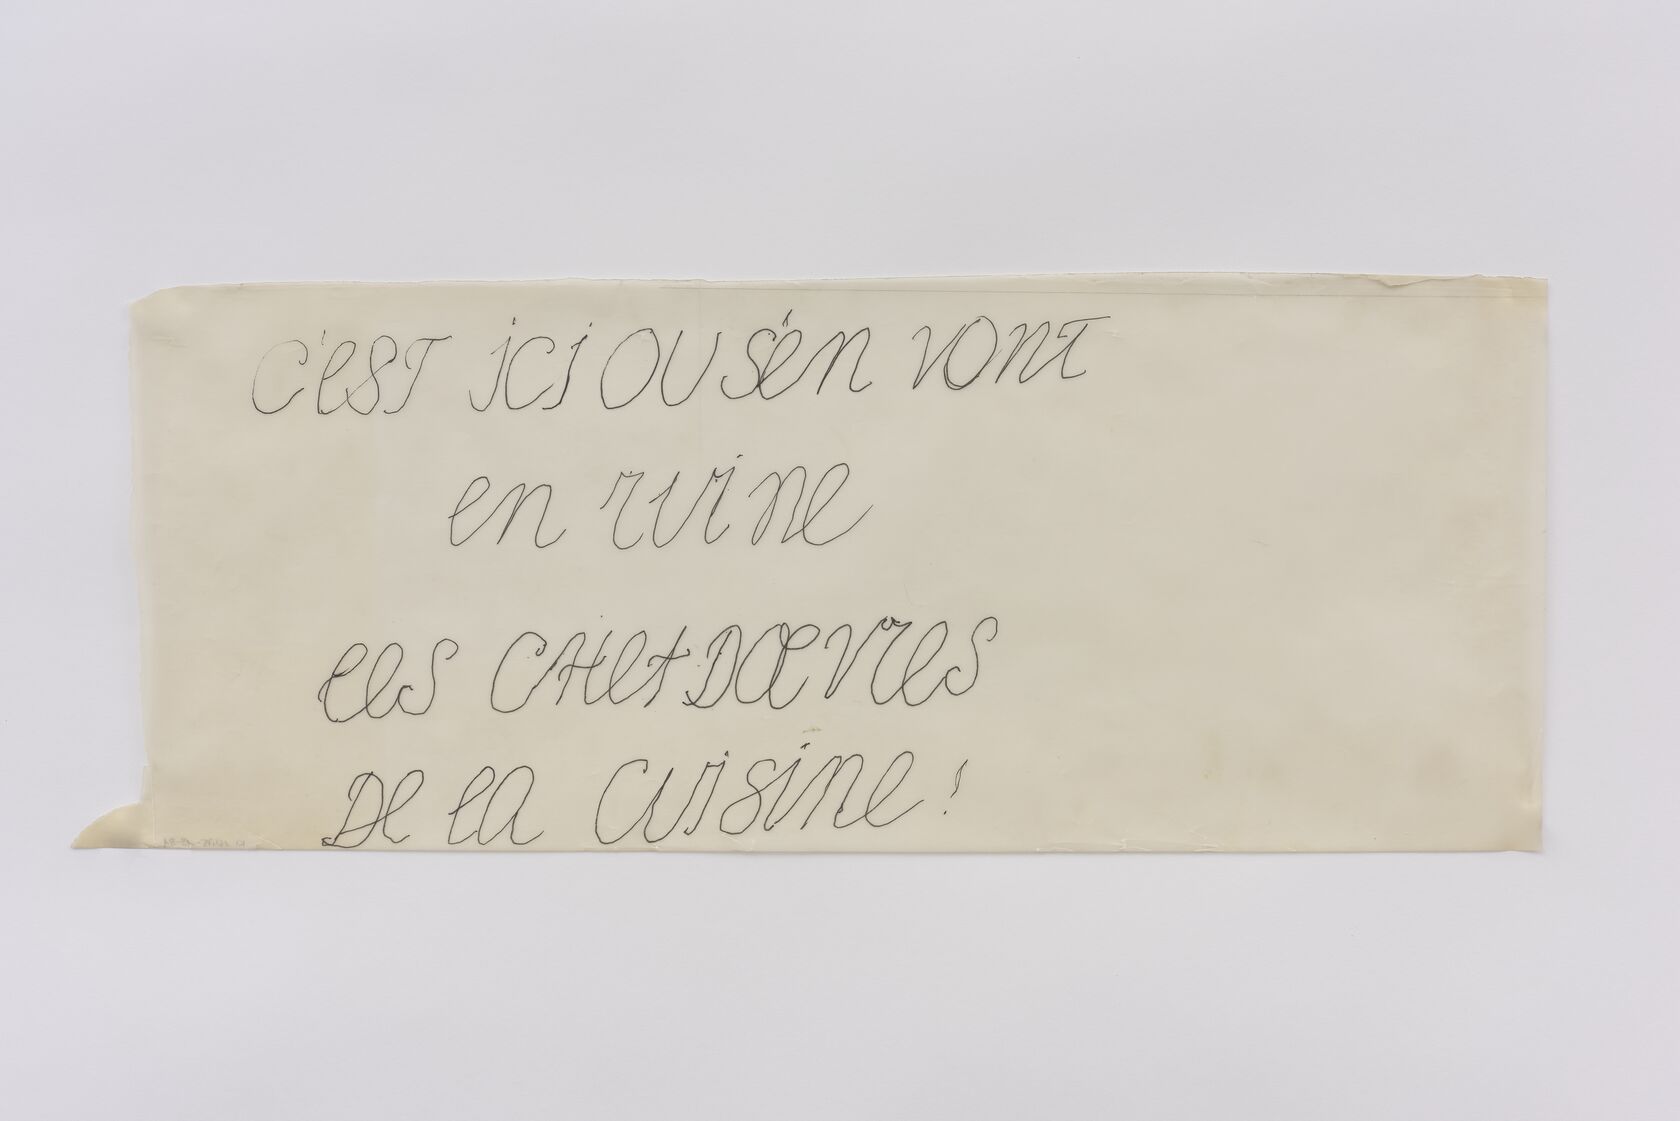 C'EST iCi OU S'en VONT
en ruine
les CHefDŒVres
De la CUiSine !